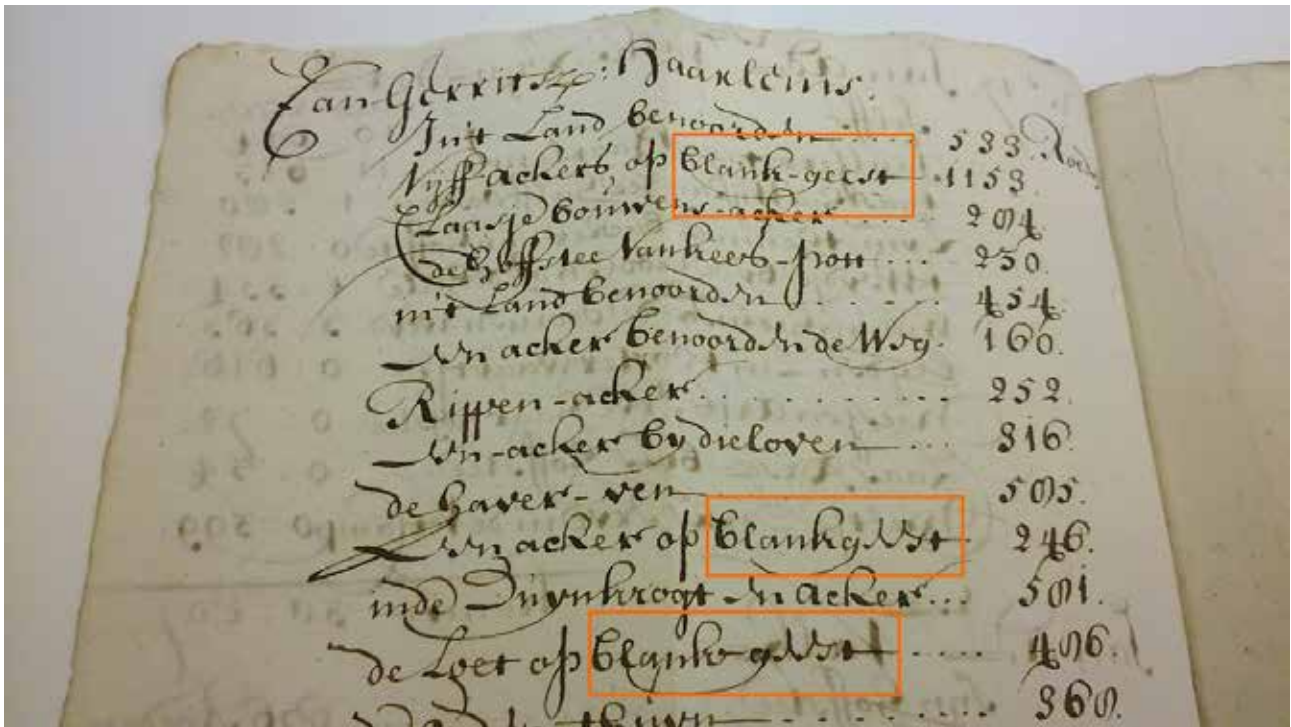 Jan Gerritsz: Haarlems.
In't Land benoorden .... 533. Roed
vijff ackers op blank-geest 1153.
Claasje bouwens-acker ... 204.
de hoffstee van kees-... 230.
in't Land benoorden ....... 454.
een acker benoorden de Weg. 160.
Rippen-acker .......... 252.
een-acker by die loven ... 316.
de haver-ven ........ 505.
Een acker op blankgeest 246.
inde Duynkrogt een acker ... 501.
de Loet op blank-geest .... 406.
360.